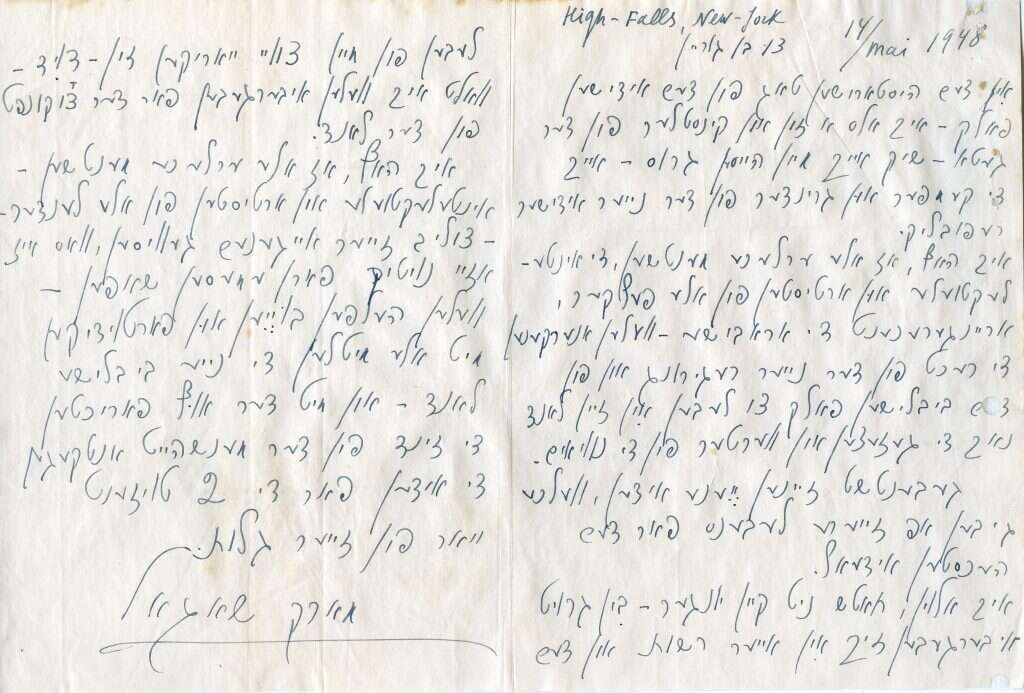 High-Falls, New-York
14/mai 1948
צו בן גוריון
אין דעם היסטארישען טאג פון דעם אידישען
פאלק – איך אלס א זון און קינסטלער פון דער
געטא – שיק אייך מיין הייסן גרוס – אייך
די קעמפער און גרינדער פון דער נייער אידישער
רעפובליק.
איך האף, אז אלע ערליכע מענטשען, די אינטע-
לעקטועלע און ארטיסטען פון אלע פעלקער,
אריינגערעכענט די אראבישע – וועלען אנערקענען
די רעכט פון דער נייער רעגירונג און פון
דעם ביבלישען פאלק צו לעבען אין זיין לאנד
נאיך די געזעצען און ווערטער פון די נביאים.
געבענטשט זיינען יענע אידען, וועלכע
גיבען אפ זייערע לעבענס פאר דעם
העכסטען אידעאל.
איך אליין, חאטש ניט קיין יונגער – בין גרויט
איבערגעבען זיך אין אייער רשות און דעם
לעבען פון מיין צוויי יאריקען זון – דוד –
וואלט איך וועלען איבערגעבען פאר דער צוקונפט
פון דער לאנד.
איך האף, אז אלע ערליכע מענטשען –
אינטעלעקטועלע און ארטיסטען פון אלע לענדער –
– צוליב זייער אייגענעם געוויסען, וואס איז
אזוי נויטיק פארן שאפען –
וועלען העלפען בויען און פארטיידיקען
מיט אלע מיטלען די נייע ביבלישע
לאנד – און מיט דער פאריכטען
די זינד פון דער מענשהייט אנטקעגן
די אידען פאר די 2 טויזענט
יאר פון זייער גלות.
מארק שאגאל